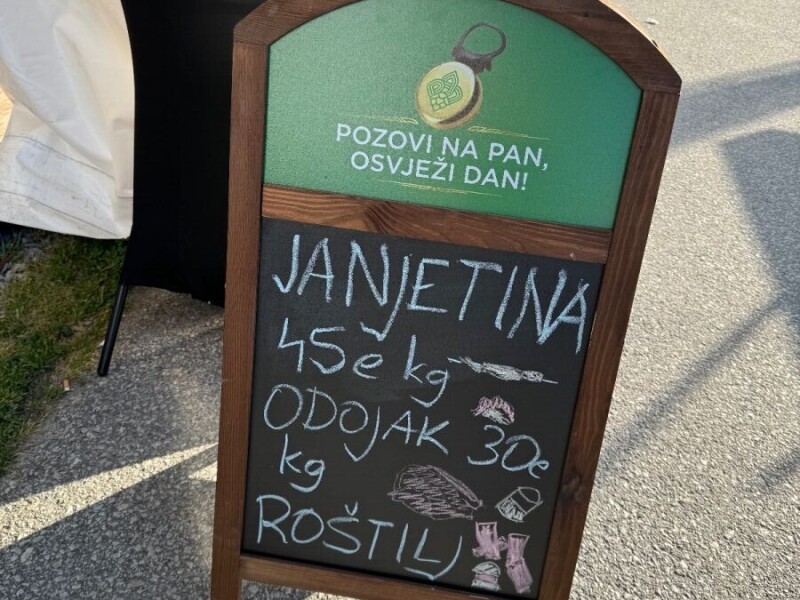 POZOVI NA PAN,
OSVJEŽI DAN!
JANJETINA
45e kg
ODOJAK 30e
kg
ROŠTILJ